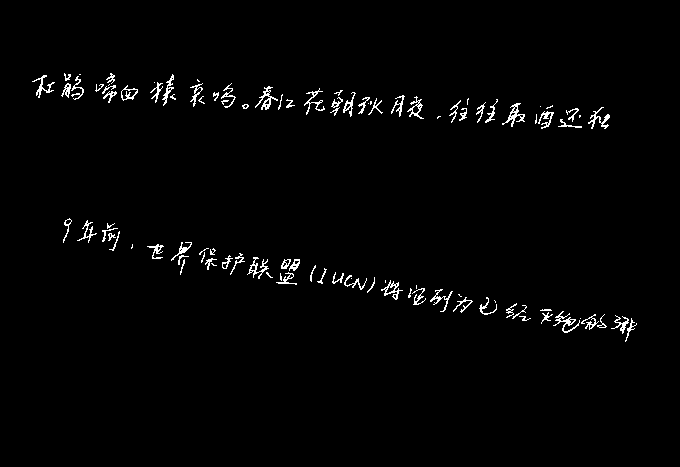 杜鹃啼血猿哀鸣。春江花朝秋月夜,往往取酒还独
9年前,世界保护联盟(IUCN)将它列为已经灭绝的